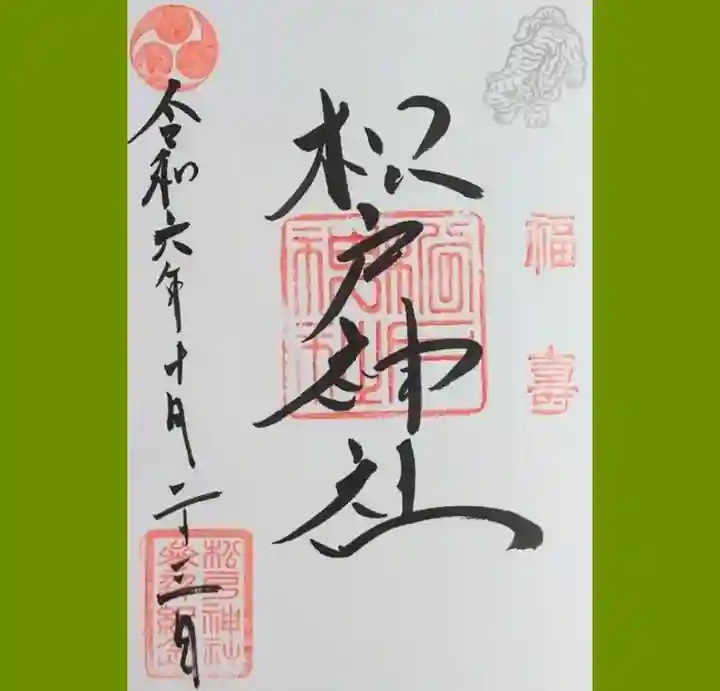 福壽
松戸神社
令和六年十月二十三日
松戸神社